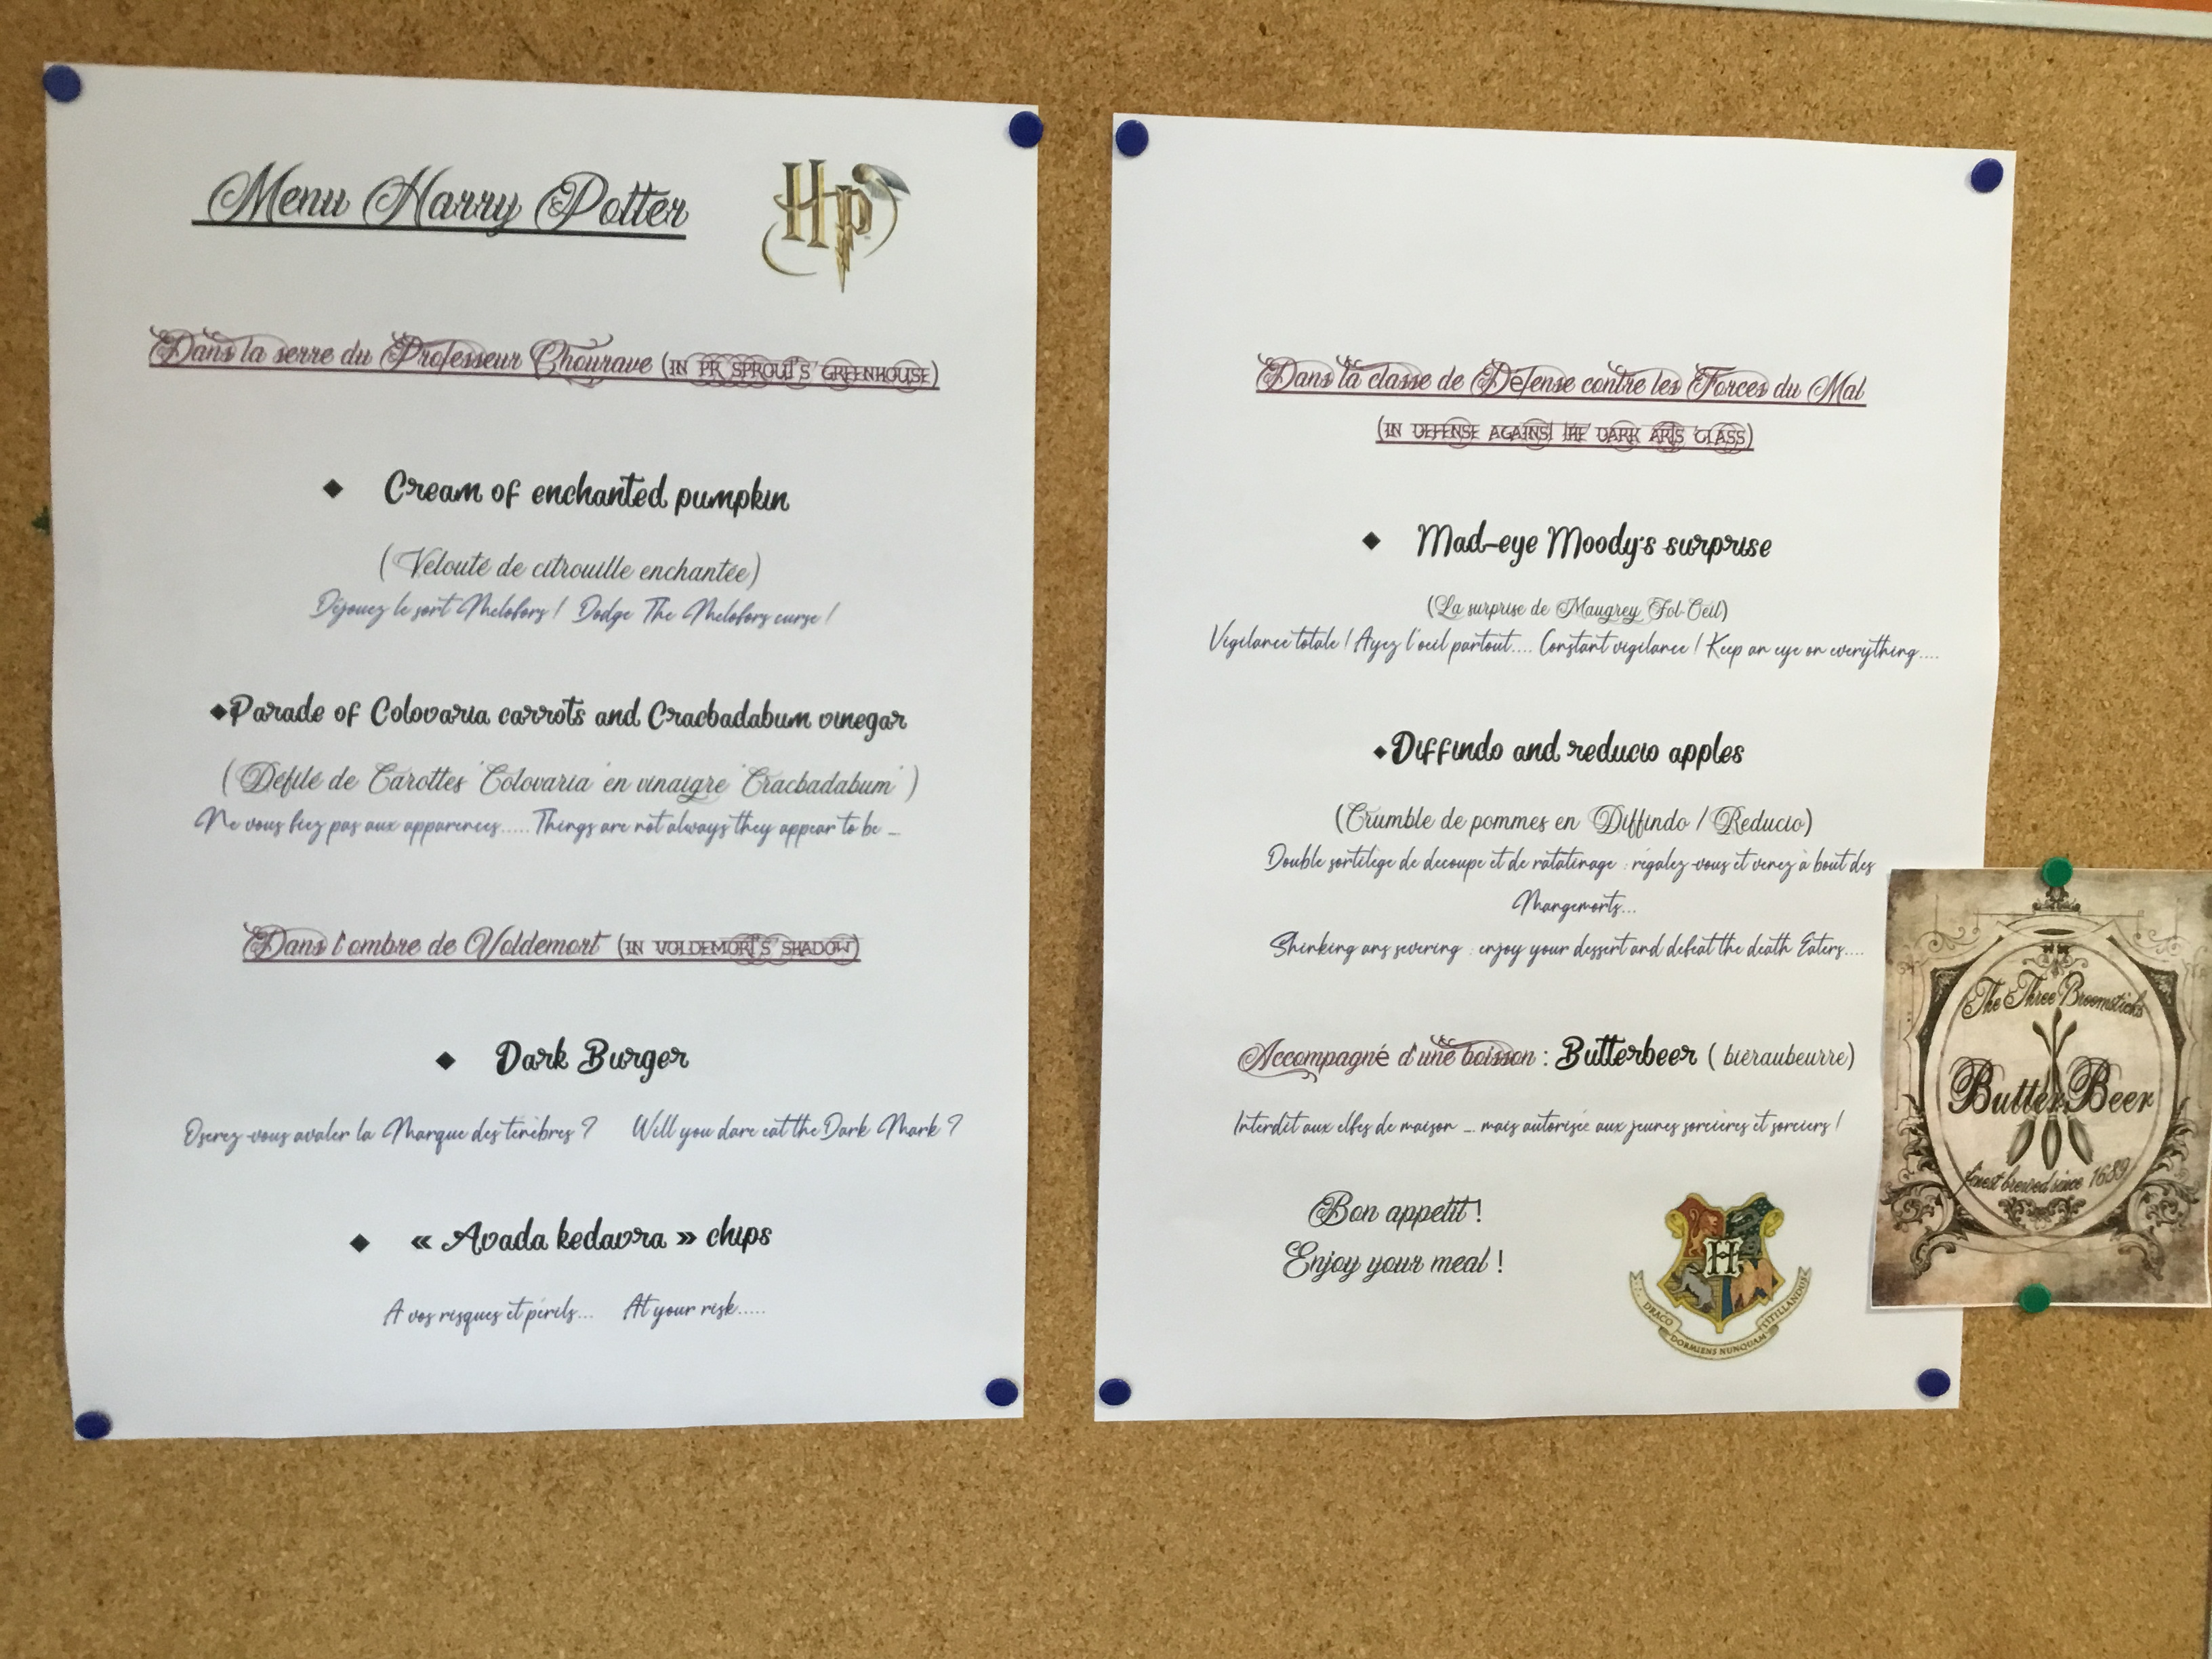 Menu Harry Potter
HP
Dans la serre du Professeur Chourave (IN PR SPROUT'S GREENHOUSE)
◆ Cream of enchanted pumpkin
(Velouté de citrouille enchantée)
Déjouez le sort Melofors ! Dodge The Melofors curse !
◆Parade of Colovaria carrots and Cracbadabum vinegar
(Défilé de Carottes "Colovaria" en vinaigre "Cracbadabum")
Ne vous fiez pas aux apparences..... Things are not always they appear to be ...
Dans l'ombre de Voldemort (IN VOLDEMORT'S SHADOW)
◆ Dark Burger
Oserez-vous avaler la Marque des ténèbres ? Will you dare eat the Dark Mark ?
◆ « Avada kedavra » chips
A vos risques et périls... At your risk.....
Dans la classe de Défense contre les Forces du Mal
(IN DEFENSE AGAINST THE DARK ARTS CLASS)
◆ Mad-eye Moody's surprise
(La surprise de Maugrey Fol-Oeil)
Vigilance totale ! Ayez l'oeil partout.... Constant vigilance ! Keep an eye on everything....
◆Diffindo and reducio apples
(Crumble de pommes en Diffindo / Reducio)
Double sortilège de decoupe et de ratatinage : régalez-vous et venez à bout des
Mangemorts...
Shinking ans severing : enjoy your dessert and defeat the death Eaters....
Accompagné d'une boisson : Butterbeer ( bièraubeurre)
Interdit aux elfes de maison ... mais autorisée aux jeunes sorcières et sorciers !
Bon appetit !
Enjoy your meal !
H
DRACO DORMIENS NUNQUAM TITILLANDUS
The Three Broomsticks
Butter Beer
finest brewed since 1689